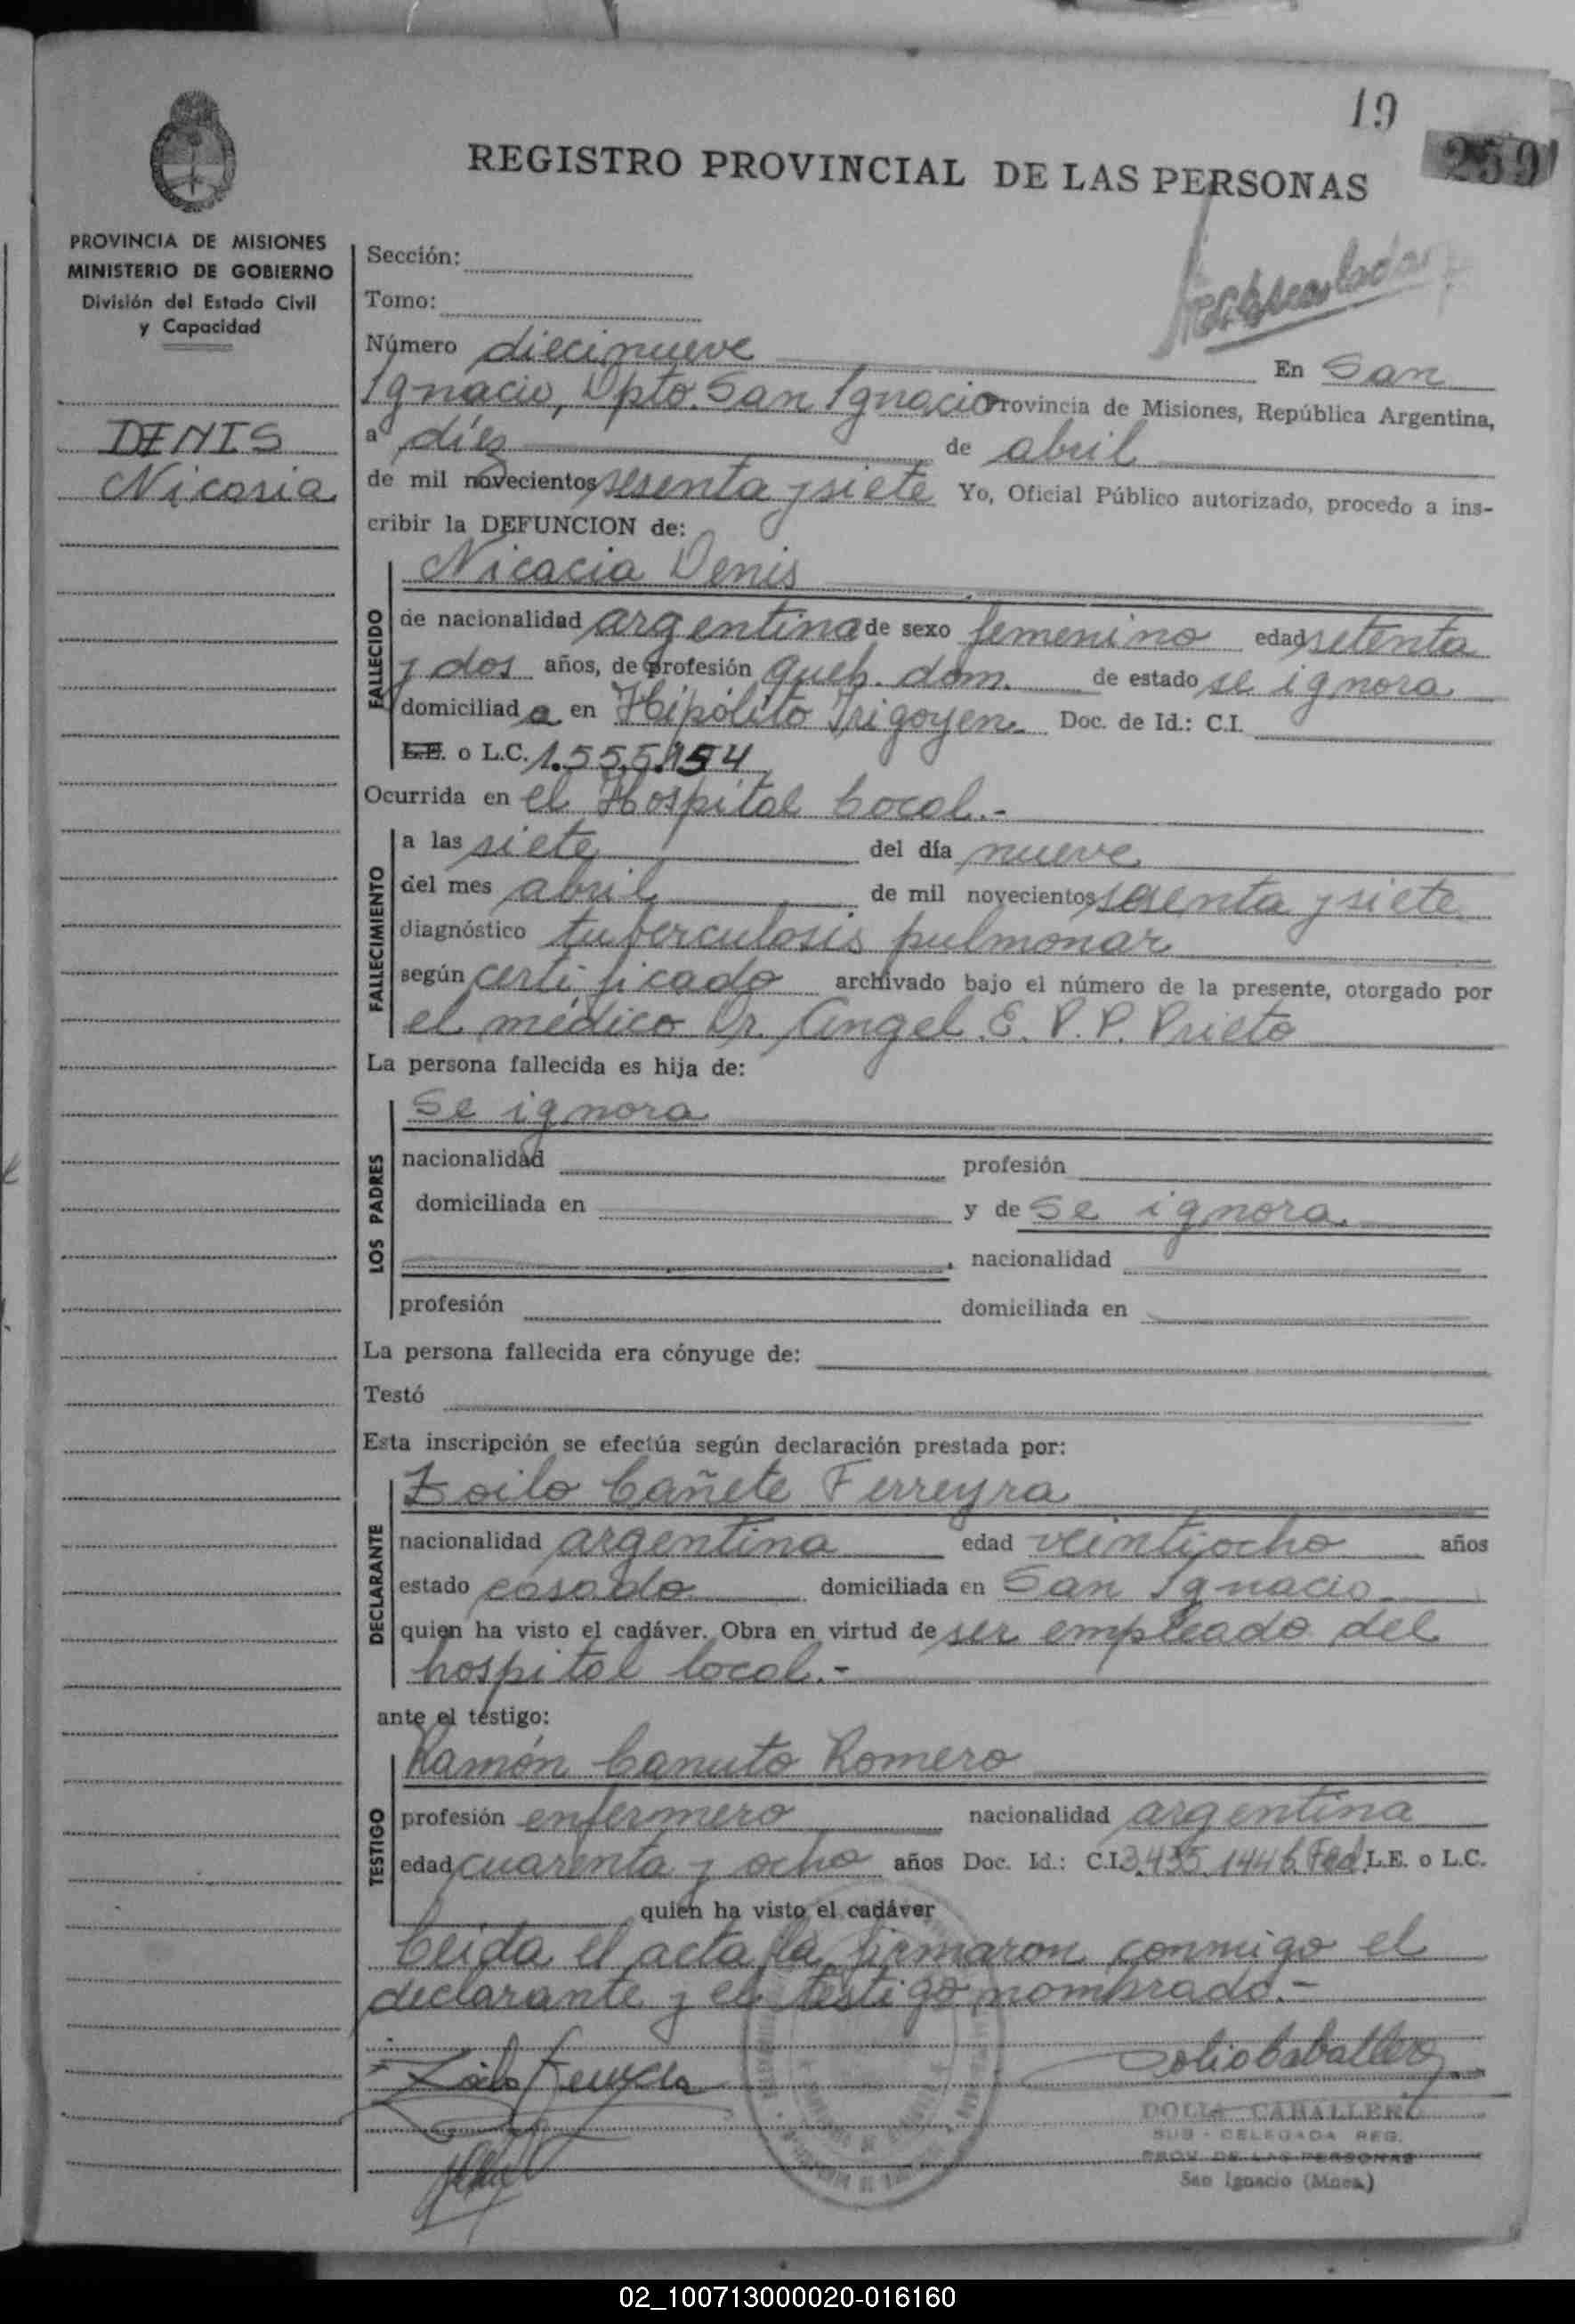 19
259
REGISTRO PROVINCIAL DE LAS PERSONAS
PROVINCIA DE MISIONES
MINISTERIO DE GOBIERNO
División del Estado Civil
y Capacidad
DENIS
Nicasia
Sección:
Tomo:
Número diecinueve En San
Ignacio, Dpto. San Ignacio Provincia de Misiones, República Argentina,
a diez de abril
de mil novecientos sesenta y siete Yo, Oficial Público autorizado, procedo a ins-
cribir la DEFUNCION de:
FALLECIDO
Nicacia Denis
de nacionalidad argentina de sexo femenino edad setenta
y dos años, de profesión queh. dom. de estado se ignora
domiciliad a en Hipólito Irigoyen Doc. de Id.: C.I.
L.E. o L.C. 1.555.154
Ocurrida en el Hospital Local.-
FALLECIMIENTO
a las siete del día nueve
del mes abril de mil novecientos sesenta y siete
diagnóstico tuberculosis pulmonar
según certificado archivado bajo el número de la presente, otorgado por
el médico Dr. Angel E. P. P. Prieto
La persona fallecida es hija de:
LOS PADRES
Se ignora
nacionalidad profesión
domiciliada en y de Se ignora.
, nacionalidad
profesión domiciliada en
La persona fallecida era cónyuge de:
Testó
Esta inscripción se efectúa según declaración prestada por:
DECLARANTE
Zoilo Cañete Ferreyra
nacionalidad argentina edad veintiocho años
estado casado domiciliada en San Ignacio
quien ha visto el cadáver. Obra en virtud de ser empleado del
hospital local.-
ante el testigo:
TESTIGO
Ramón Canuto Romero
profesión enfermero nacionalidad argentina
edad cuarenta y ocho años Doc. Id.: C.I. 3.435.144 Fed. L.E. o L.C.
quien ha visto el cadáver
Leída el acta la firmaron conmigo el
declarante y el testigo nombrado.-
Zoilo Ferreyra
Dolia Caballero
DOLIA CABALLERO
SUB-DELEGADA REG.
PROV. DE LAS PERSONAS
San Ignacio (Mnes.)
02_100713000020-016160